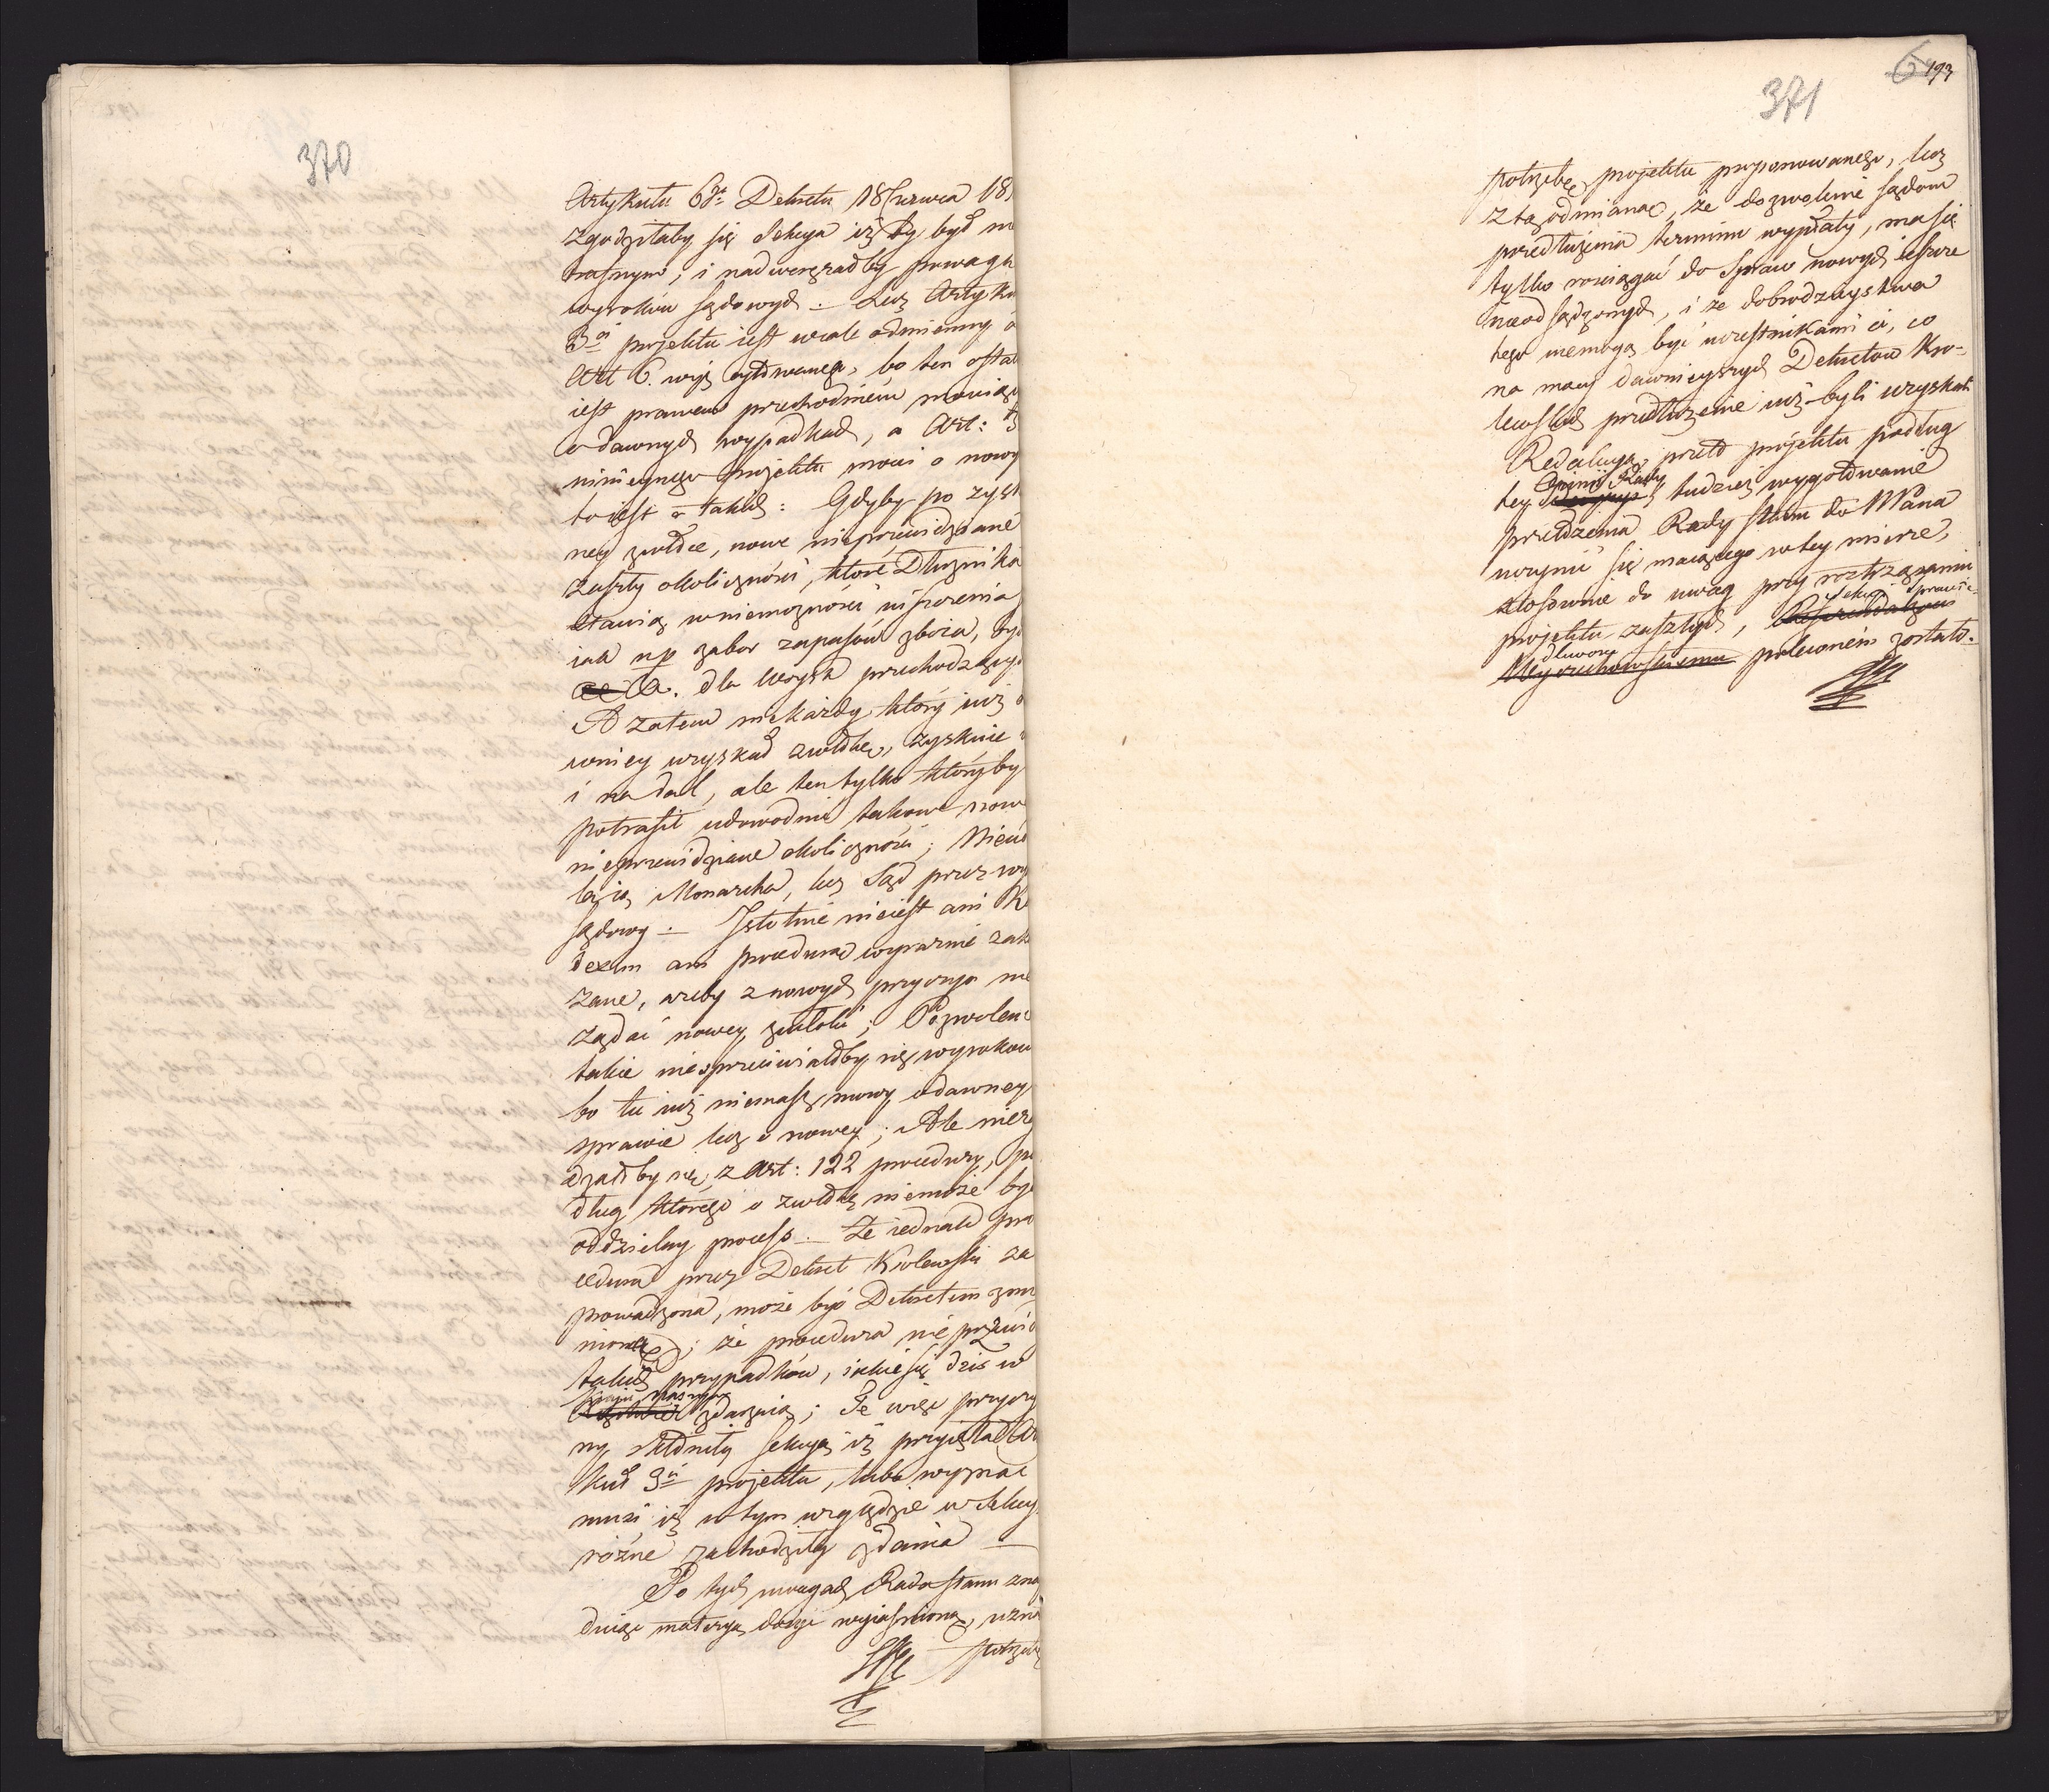 370
Artykułu 6go Dekretu 18 Czerwca 18
zgodziłaby się Sekcya iż by był nie
trafnym, i nadwerężałby powagę
wyroków sądowych. — Lecz Artyku
3ci projektu iest wcale odmienny o
Art 6. wyż cytowanego, bo ten ostat
iest prawem przechodniem mowiąc
o dawnych wypadkach, a Art: 3
ninieyszego projektu mowi o nowy
to iest o takich: Gdyby po zysk
ney zwłoce, nowe nieprzewidziane
zaszły okoliczności, które Dłużnika
stawią w niemożności uiszczenia
iak np zabor zapasów zboża, byd
dla woysk przechodzący
A zatem nie każdy który iuż d
wniey uzyskał zwłokę, zyskuie
i nadal, ale ten tylko któryby
potrafił udowodnić takowe nowe
nieprzewidziane okoliczności; Nieud
la ią Monarcha, lecz Sąd przez wy
sądowy. — Istotnie nie iest ani Ko
dexem ani procedurą wyraznie zaka
zane, ażeby z nowych przyczyn nie
żądać nowey zwłoki; Pozwolenie
takie niesprzeciwiałoby się wyrokowi
bo tu iuż niemasz mowy o dawney
sprawie lecz o nowey; Ale niezg
dzałoby się z Art: 122 procedury, po
dług którego o zwłokę niemoże być
oddzielny process. — Że iednak pro
cedura przez Dekret Krolewski za
prowadzona, może być Dekretem zmie
nioną; że procedura nie przewid
takich przypadków, iakie się dziś w
kraju naszym
zdarzaią; Te więc przyczy
ny skłoniły Sekcyą iż przyięła Arty
kuł 3ci projektu, lubo wyznać
musi iż w tym względzie w Sekcyi
różne zachodziły zdania —
Po tych uwagach Rada Stanu znay
duiąc materyą dosyć wyiaśnioną, uzna
potrzebę
371
6 193
potrzebę projektu proponowanego, lecz
z tą odmianą, że dozwolenie sądom
przedłużenia terminu wypłaty, ma się
tylko rościągać do Spraw nowych ieszcze
nieodsądzonych, i że dobrodzieystwa
tego niemogą być uczestnikami ci, co
na mocy dawnieyszych Dekretow Kro-
lewskich przedłużenie iuż byli uzyskali
Redakcya przeto projektu podług
Opinii Rady
tey tudzież wygotowanie
przełożenia Rady Stanu do NPana
uczynić się maiącego w tey mierze,
stosownie do uwag przy roztrząsaniu
Sekcyi Sprawie-
projektu zaszłych, Referendarzowi
dliwości
Wyczechowskiemu poleconem zostało.